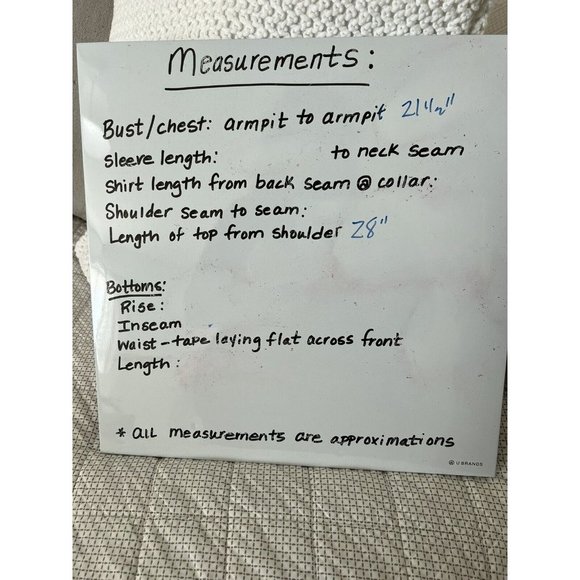 Measurements:
Bust/chest: armpit to armpit 21 1/2"
Sleeve length: to neck seam
Shirt length from back seam @ collar:
Shoulder seam to seam:
Length of top from shoulder 28"
Bottoms:
Rise:
Inseam
Waist-tape laying flat across front
Length:
* all measurements are approximations
U BRANDS